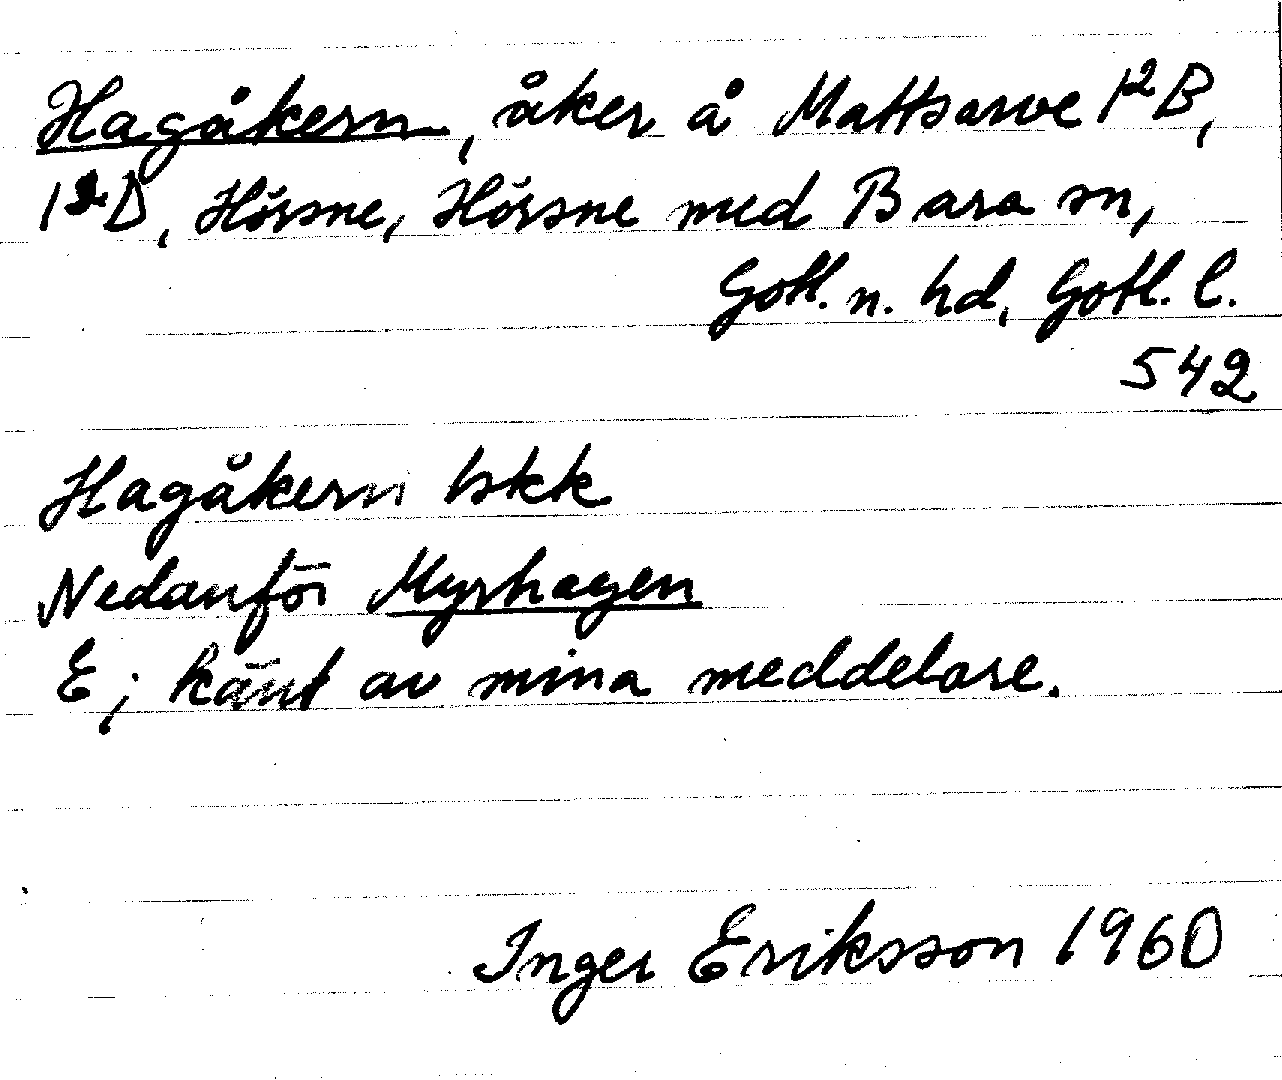 Hagåkern, åker å Mattsarve 1²B,
1²D, Hörsne, Hörsne med Bara sn,
Gotl. n. hd, Gotl. l.
542
Hagåkern bskk
Nedanför Myrhagen
E; känt av mina meddelare.
Inger Eriksson 1960